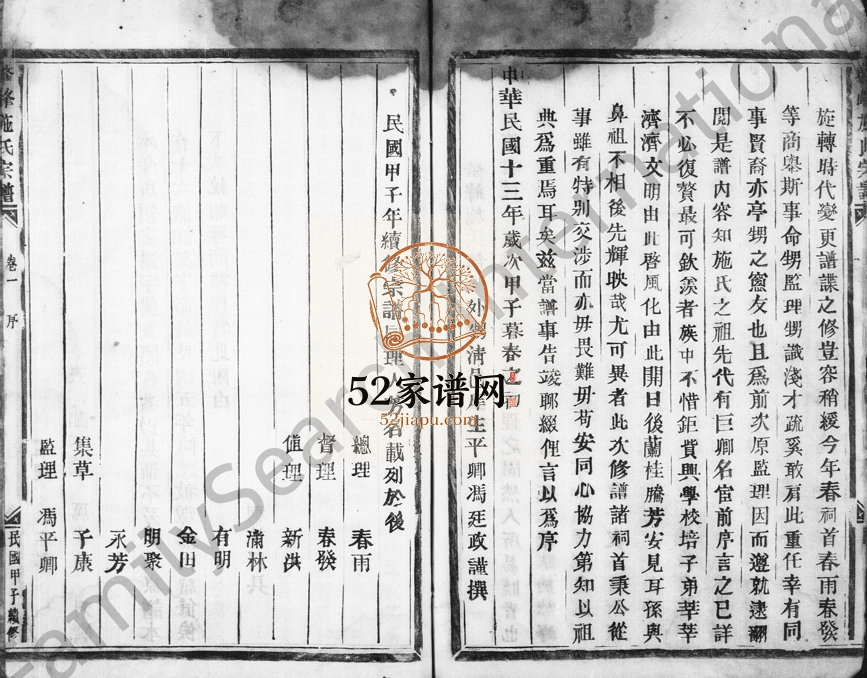 旋轉時代變更譜諜之修豈容稍緩今年春祠首春雨春發
等商舉斯事命甥監理甥識淺才疏奚敢肩此重任幸有同
事賢裔亦亭甥之窗友也且為前次原監理因而遵就逮翻
閱是譜內容知施氏之祖先代有巨卿名宦前序言之已詳
不必復贅最可欽羨者族中不惜鉅貲興學校培子弟莘莘
濟濟文明由此啓風化由此開日後蘭桂騰芳安見耳孫與
鼻祖不相後先輝映哉尤可異者此次修譜諸祠首秉公從
事雖有特別交涉而亦毋畏難毋苟安同心協力第知以祖
典為重焉耳矣兹當譜事告竣聊綴俚言以為序
中華民國十三年歲次甲子暮春之
外甥清邑庠生平卿馮廷政謹撰
民國甲子年續修宗譜 理人 名載列於後
總理 春雨
督理 春發
催理 新洪
瀟林
有明
金田
明聚
永芳
集草 子康
監理 馮平卿
峰施氏宗譜 卷一 序 民國甲子續修
52家谱网
52jiapu.com
FamilySearch International